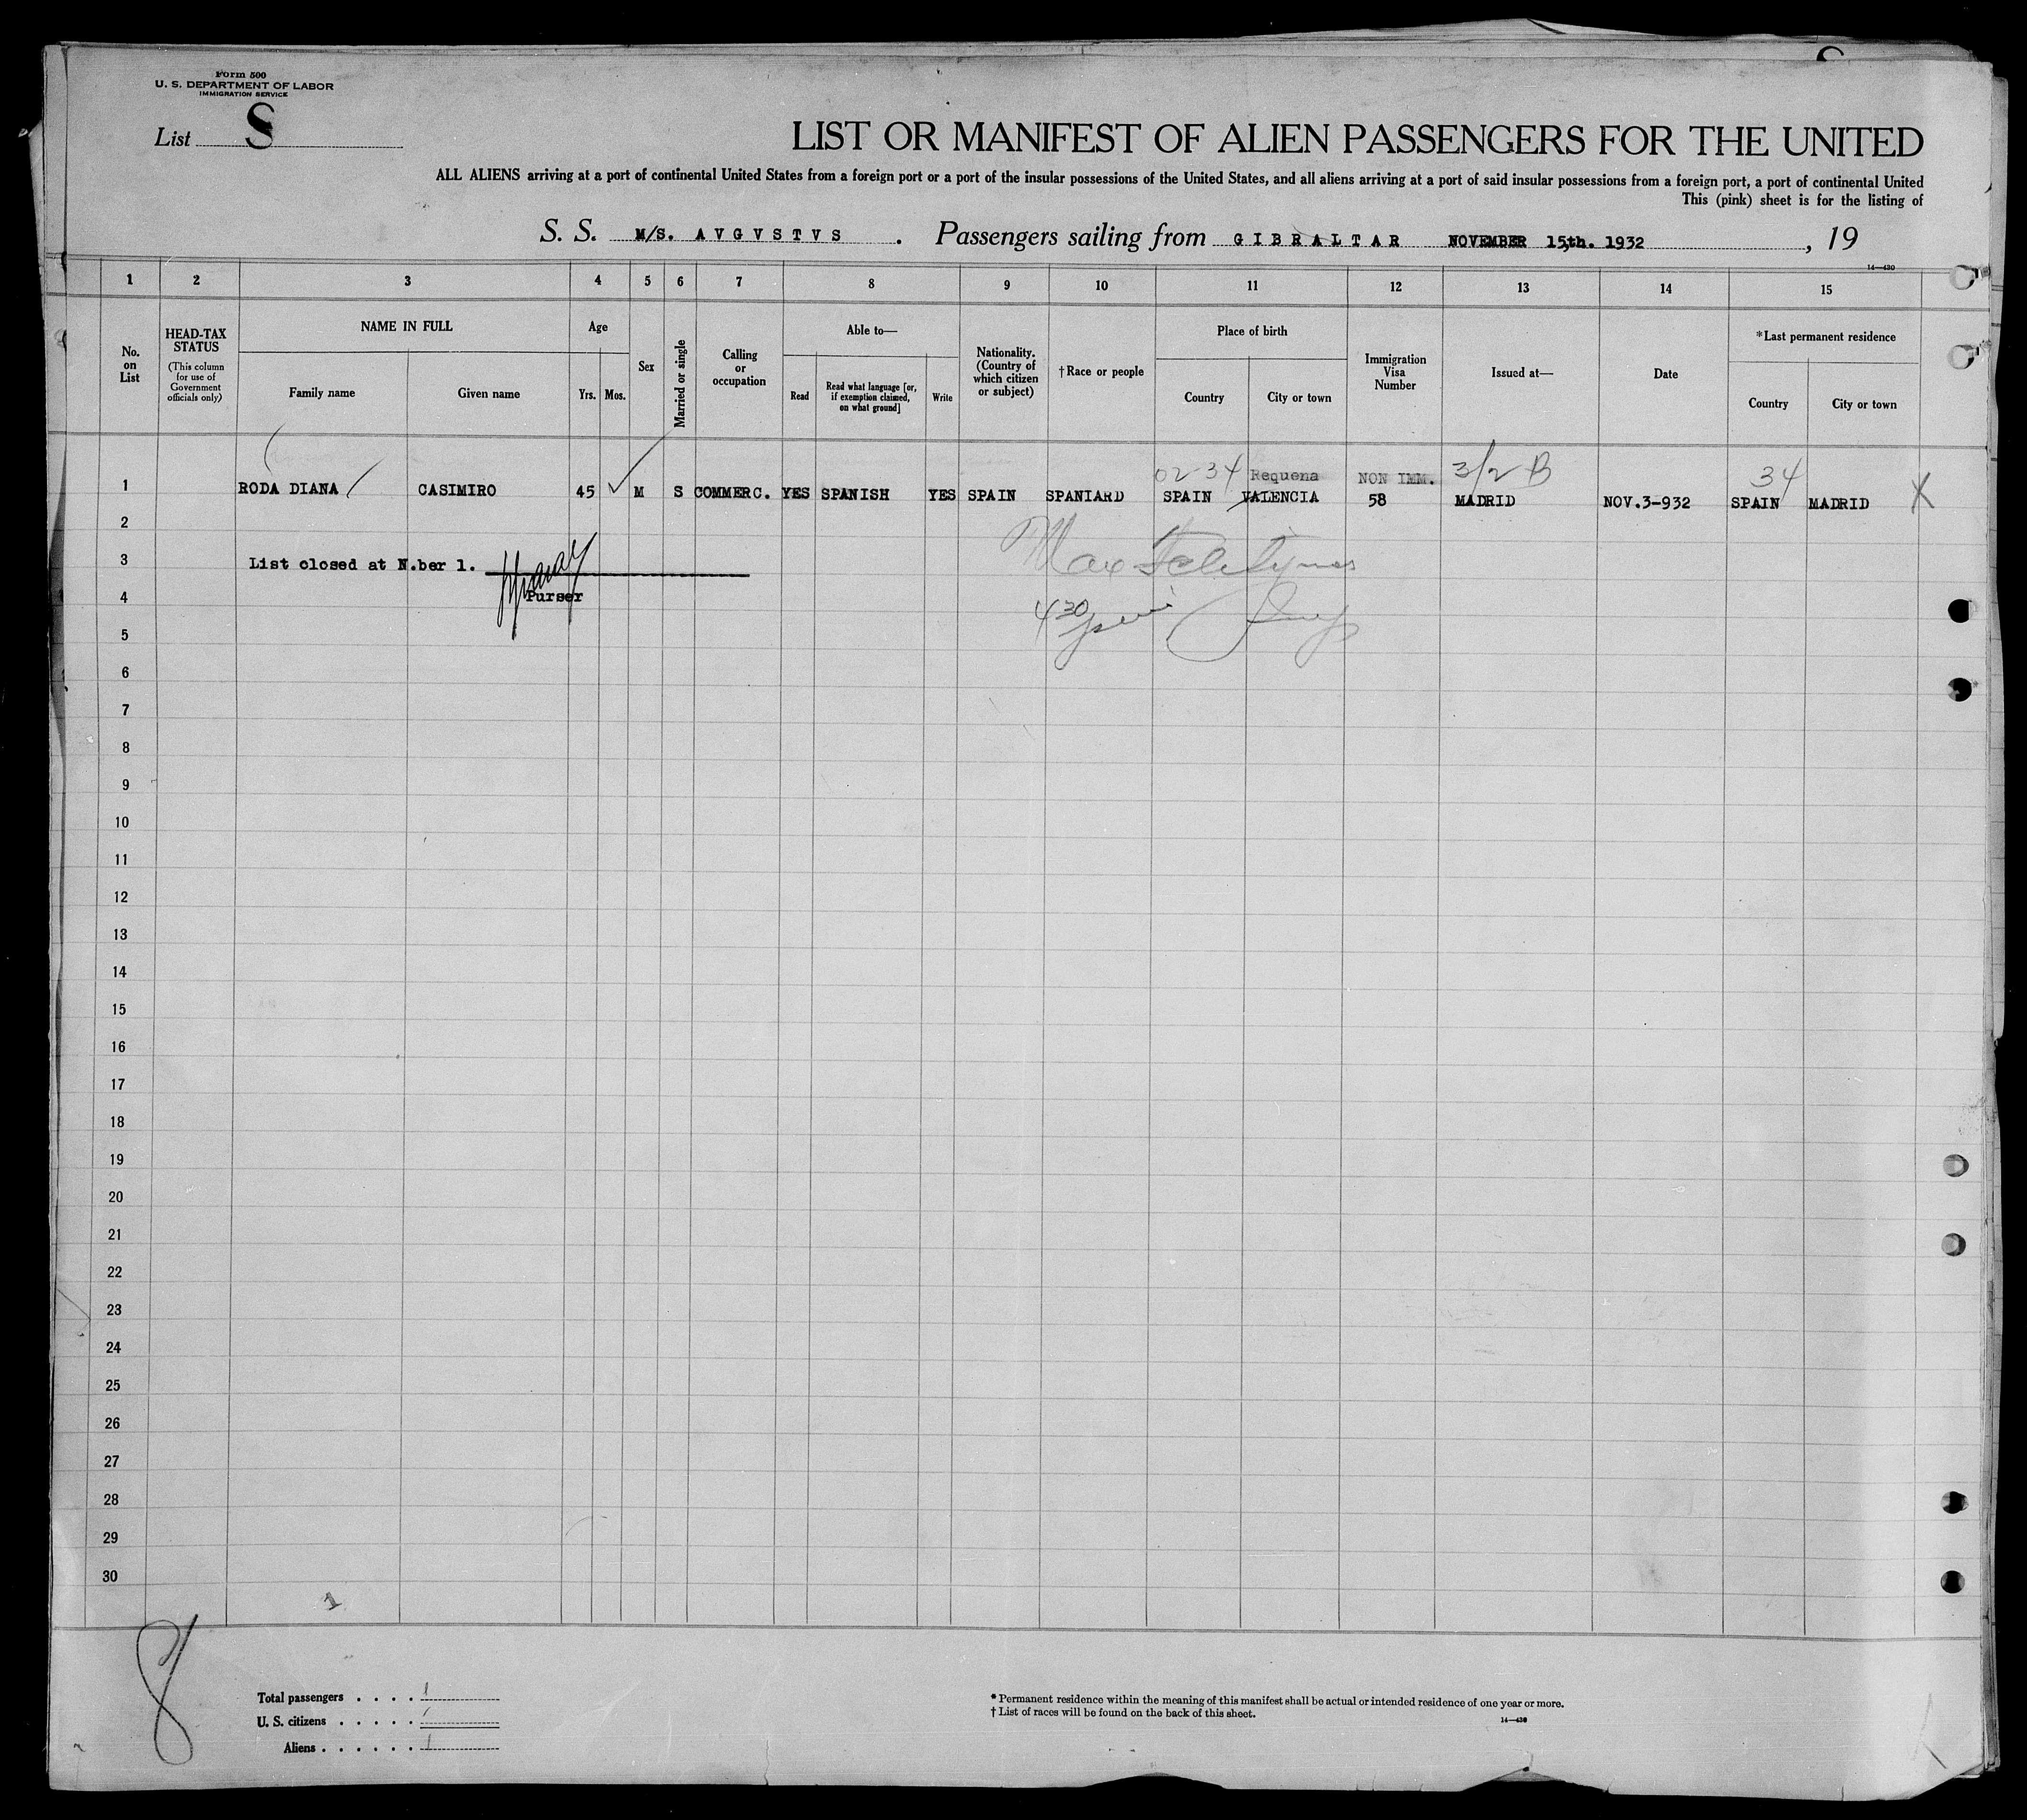 Form 500
U. S. DEPARTMENT OF LABOR
IMMIGRATION SERVICE
List S
LIST OR MANIFEST OF ALIEN PASSENGERS FOR THE UNITED
ALL ALIENS arriving at a port of continental United States from a foreign port or a port of the insular possessions of the United States, and all aliens arriving at a port of said insular possessions from a foreign port, a port of continental United
This (pink) sheet is for the listing of
S. S. M/S. AVGVSTVS . Passengers sailing from GIBRALTAR NOVEMBER 15th. 1932 , 19
14—430
1 2 3 4 5 6 7 8 9 10 11 12 13 14 15
No. on List
HEAD-TAX STATUS
(This column for use of Government officials only)
NAME IN FULL
Family name
Given name
Age
Yrs.
Mos.
Sex
Married or single
Calling or occupation
Able to—
Read
Read what language [or, if exemption claimed, on what ground]
Write
Nationality. (Country of which citizen or subject)
†Race or people
Place of birth
Country
City or town
Immigration Visa Number
Issued at—
Date
*Last permanent residence
Country
City or town
02 34 Requena NON IMM. 3/2 B 34
1 RODA DIANA CASIMIRO 45 M S COMMERC. YES SPANISH YES SPAIN SPANIARD SPAIN VALENCIA 58 MADRID NOV.3-932 SPAIN MADRID X
2
3 List closed at N.ber 1.
4 Purser
5
6
7
8
9
10
11
12
13
14
15
16
17
18
19
20
21
22
23
24
25
26
27
28
29
30
1
8
Total passengers . . . . 1
U. S. citizens . . . . .
Aliens . . . . . . 1
* Permanent residence within the meaning of this manifest shall be actual or intended residence of one year or more.
† List of races will be found on the back of this sheet.
14—430